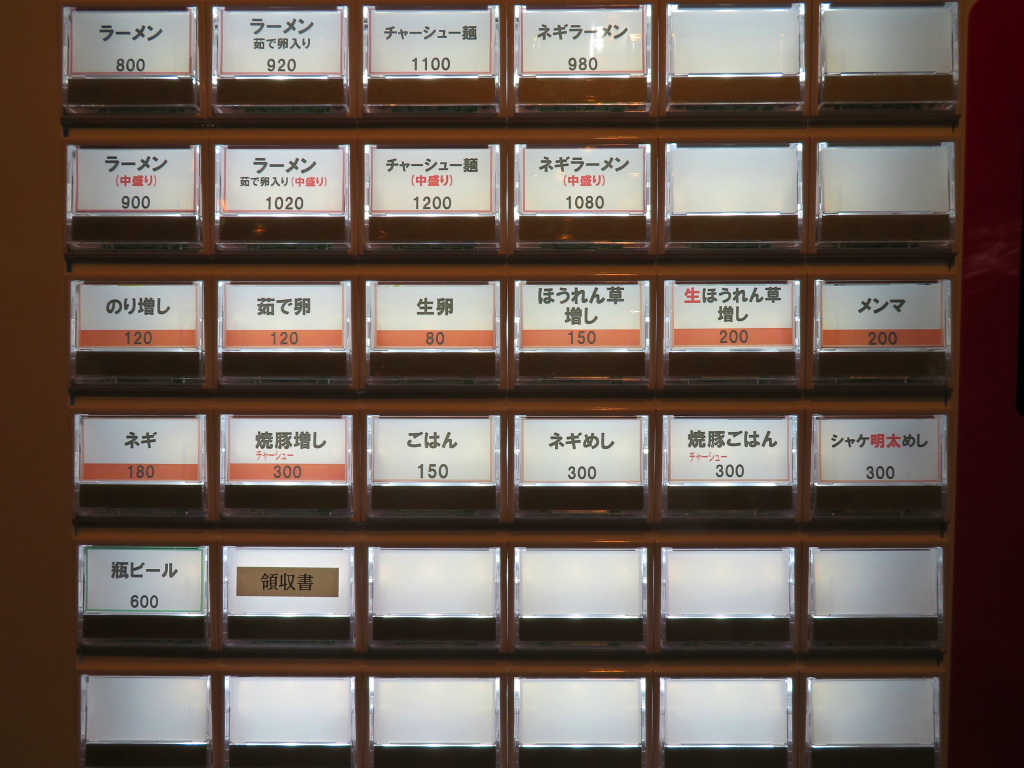 ラーメン
800
ラーメン
茹で卵入り
920
チャーシュー麺
1100
ネギラーメン
980
ラーメン
(中盛り)
900
ラーメン
茹で卵入り(中盛り)
1020
チャーシュー麺
(中盛り)
1200
ネギラーメン
(中盛り)
1080
のり増し
120
茹で卵
120
生卵
80
ほうれん草
増し
150
生ほうれん草
増し
200
メンマ
200
ネギ
180
焼豚増し
チャーシュー
300
ごはん
150
ネギめし
300
焼豚ごはん
チャーシュー
300
シャケ明太めし
300
瓶ビール
600
領収書